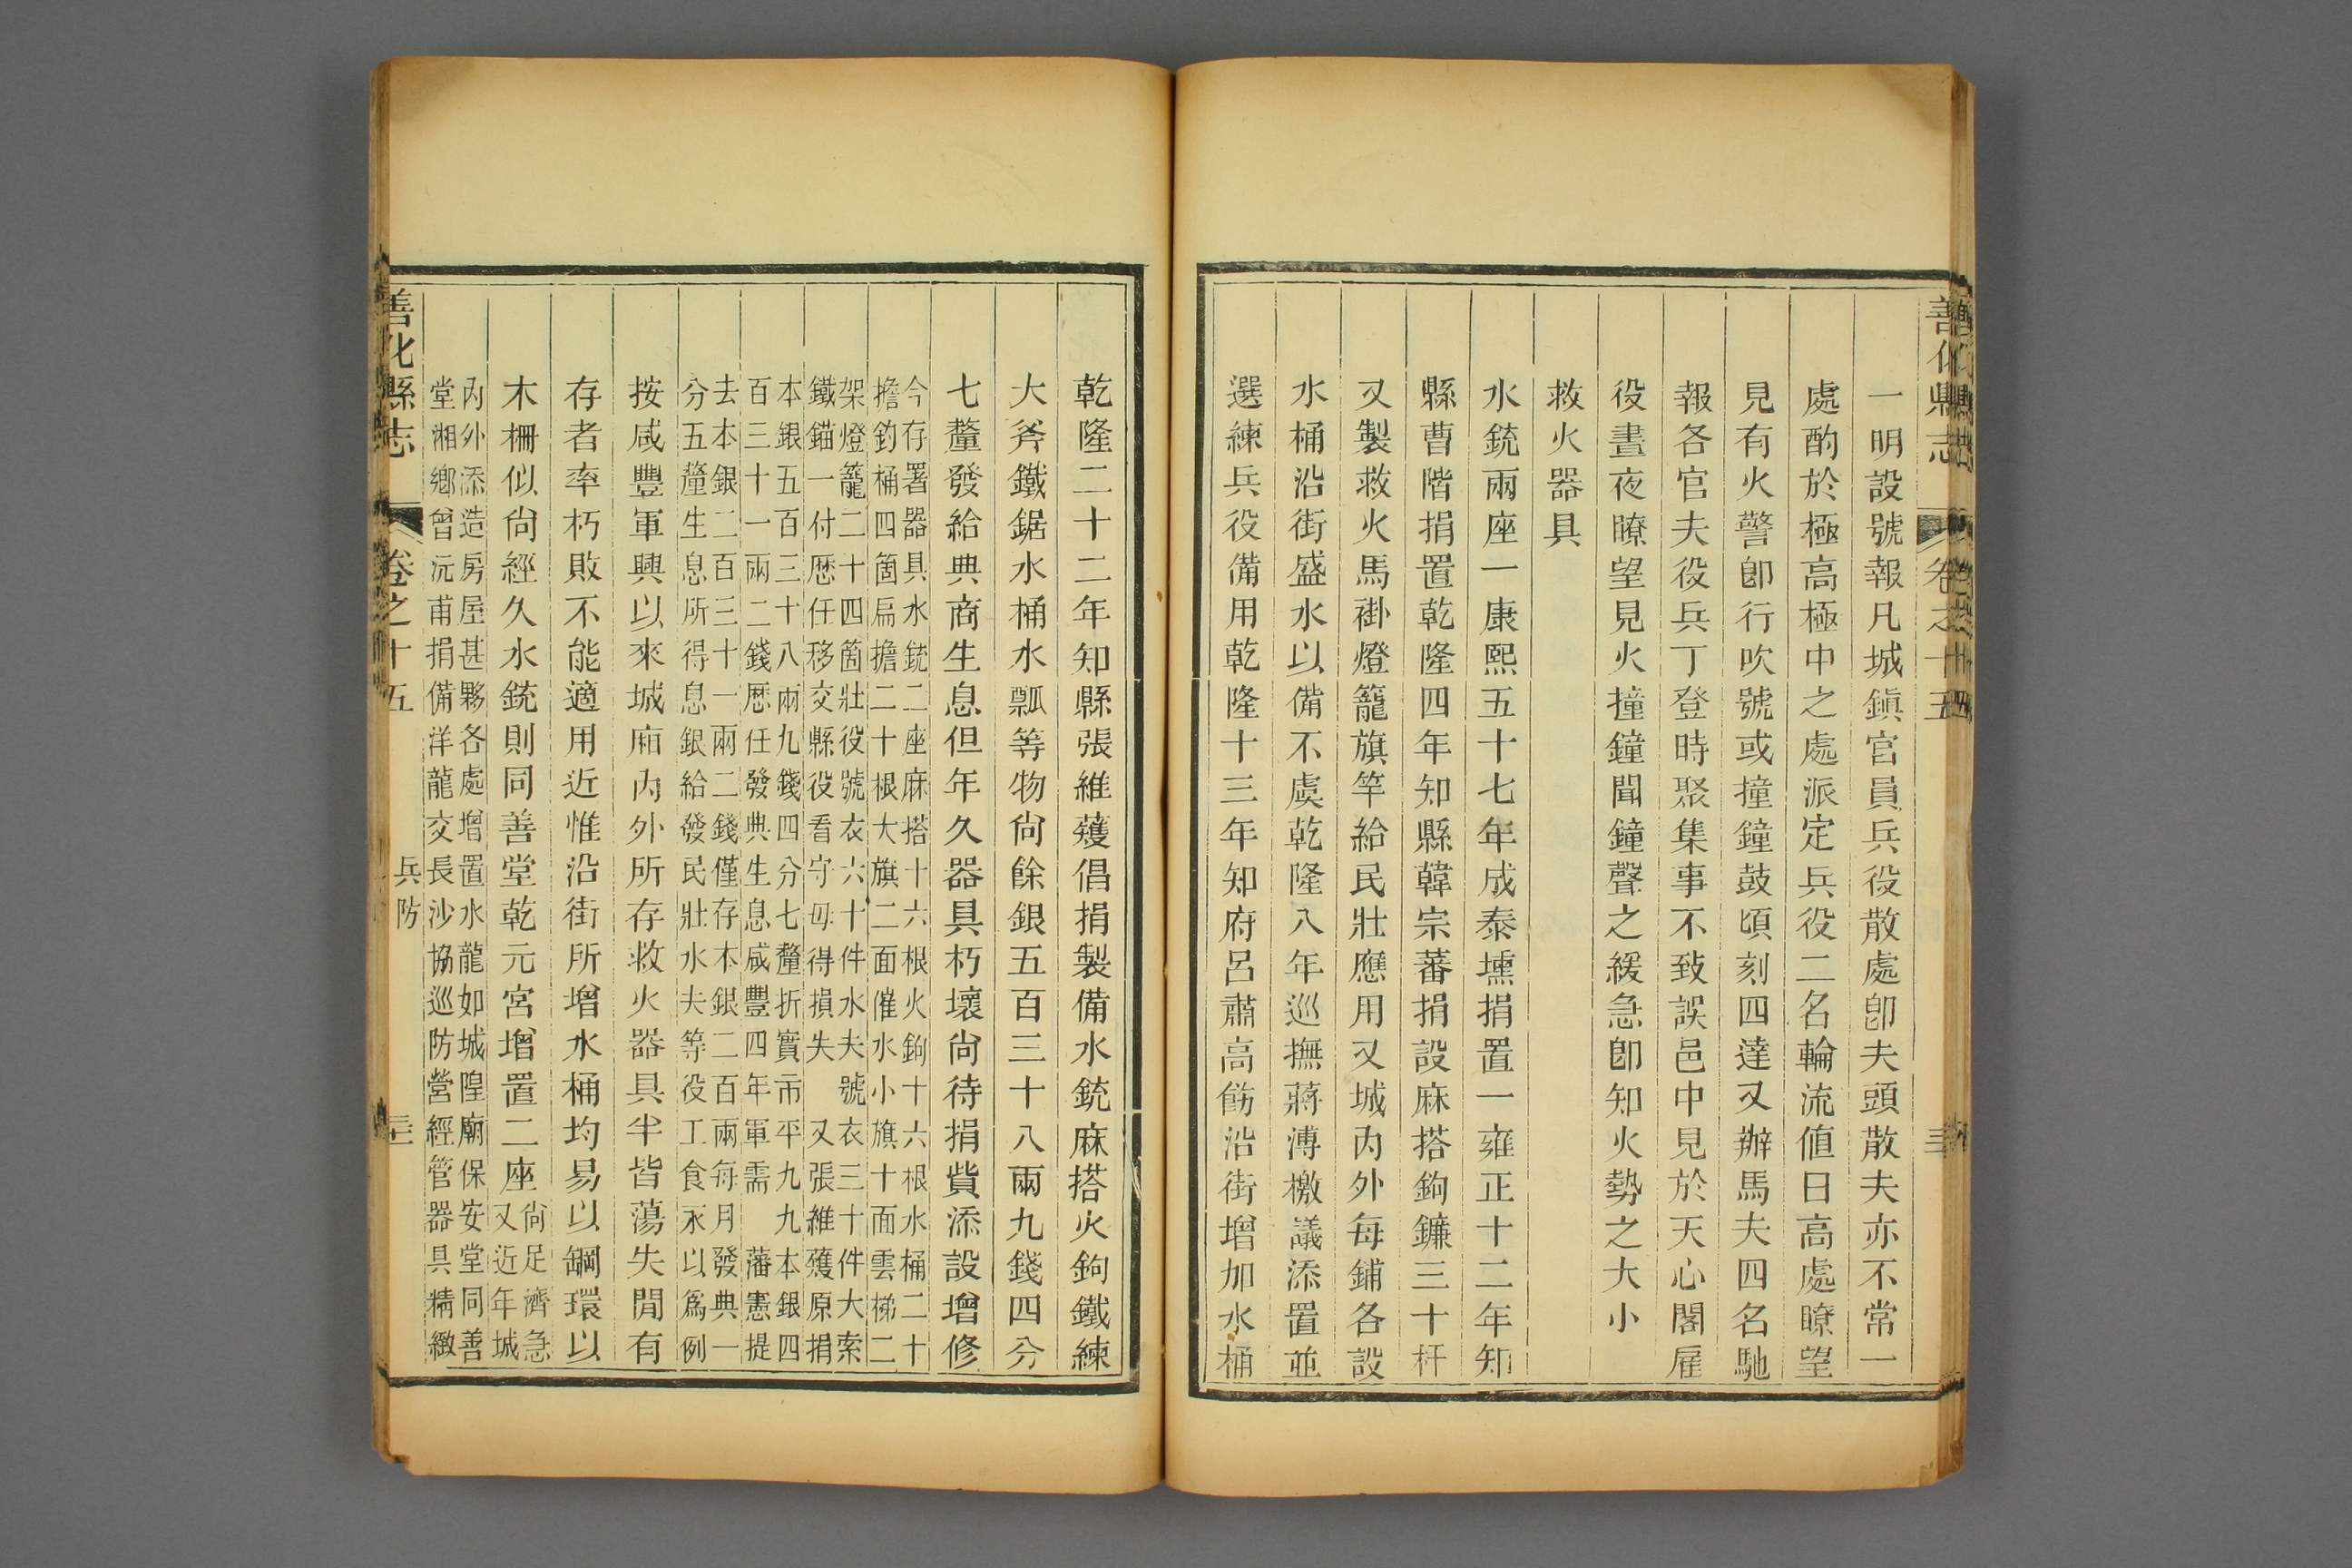 善化縣志
卷之十五
一明設號報凡城鎮官員兵役散處卽夫頭散夫亦不常一
處酌於極高極中之處派定兵役二名輪流値日高處瞭望
見有火警卽行吹號或撞鐘鼓頃刻四達又辦馬夫四名馳
報各官夫役兵丁登時聚集事不致誤邑中見於天心閣雇
役晝夜瞭望見火撞鐘聞鐘聲之緩急卽知火勢之大小
救火器具
水銃兩座一康熙五十七年成泰壎捐置一雍正十二年知
縣曹階捐置乾隆四年知縣韓宗蕃捐設麻搭鉤鐮三十杆
又製救火馬褂燈籠旗竿給民壯應用又城內外每鋪各設
水桶沿街盛水以備不虞乾隆八年巡撫蔣溥檄議添置並
選練兵役備用乾隆十三年知府呂肅高飭沿街增加水桶
乾隆二十二年知縣張維䕶倡捐製備水銃麻搭火鉤鐵練
大斧鐵鋸水桶水瓢等物尙餘銀五百三十八兩九錢四分
七釐發給典商生息但年久器具朽壞尙待捐貲添設增修
今存署器具水銃二座麻搭十六根火鉤十六根水桶二十
擔釣桶四箇扁擔二十根大旗二面催水小旗十面雲梯二
架燈籠二十四箇壯役號衣六十件水夫號衣三十件大索
鐵錨一付歷任移交縣役看守毋得損失 又張維䕶原捐
本銀五百三十八兩九錢四分七釐折實市平九九本銀四
百三十一兩二錢歷任發典生息咸豐四年軍需 藩憲提
去本銀二百三十一兩二錢僅存本銀二百兩每月發典一
分五釐生息所得息銀給發民壯水夫等役工食永以爲例
按咸豐軍興以來城廂內外所存救火器具半皆蕩失閒有
存者率朽敗不能適用近惟沿街所增水桶均易以鋼環以
木柵似尙經久水銃則同善堂乾元宮增置二座尙足濟急
又近年城
內外添造房屋甚夥各處增置水龍如城隍廟保安堂同善
堂湘鄉曾沅甫捐備洋龍交長沙協巡防營經管器具精緻
善化縣志
卷之十五
兵防